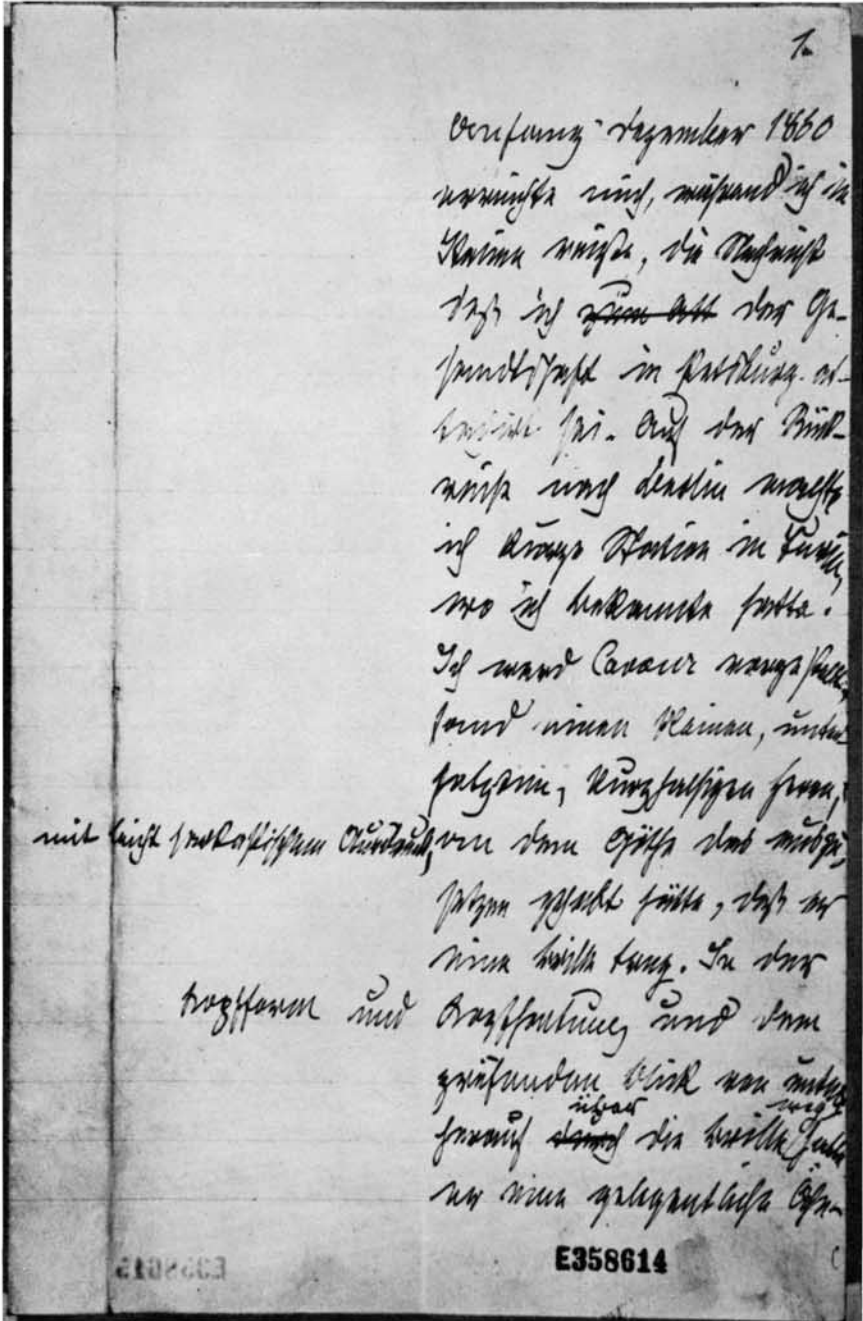 1.
Anfang Dezember 1860
erreichte mich, während ich in
reiste, die Nachricht
daß ich zum Att der Ge-
sandtschaft in Petersburg at-
tachirt sei. Auf der Rück-
reise nach Berlin machte
ich kurze Station in Turin,
wo ich Bekannte hatte.
Ich ward Cavour vorgestellt,
fand einen kleinen, unter
setzten, kurzhalsigen Herrn,
mit leicht sarkastischem Ausdruck, von dem Göthe das auszu-
setzen gehabt hätte, daß er
eine Brille trug. In der
Kopfform und Kopfhaltung und dem
prüfenden Blick von unten
über weg
herauf durch die Brille hatte
er eine gelegentliche Ähn-
E358614